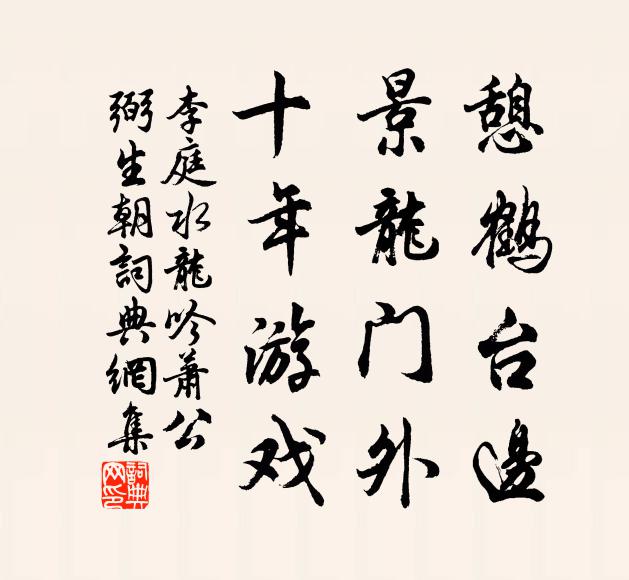 憩鹤台邊
景龍门外
十年游戏
李庭水龍吟蕭公
弼生朝詞典網集
詞典网印